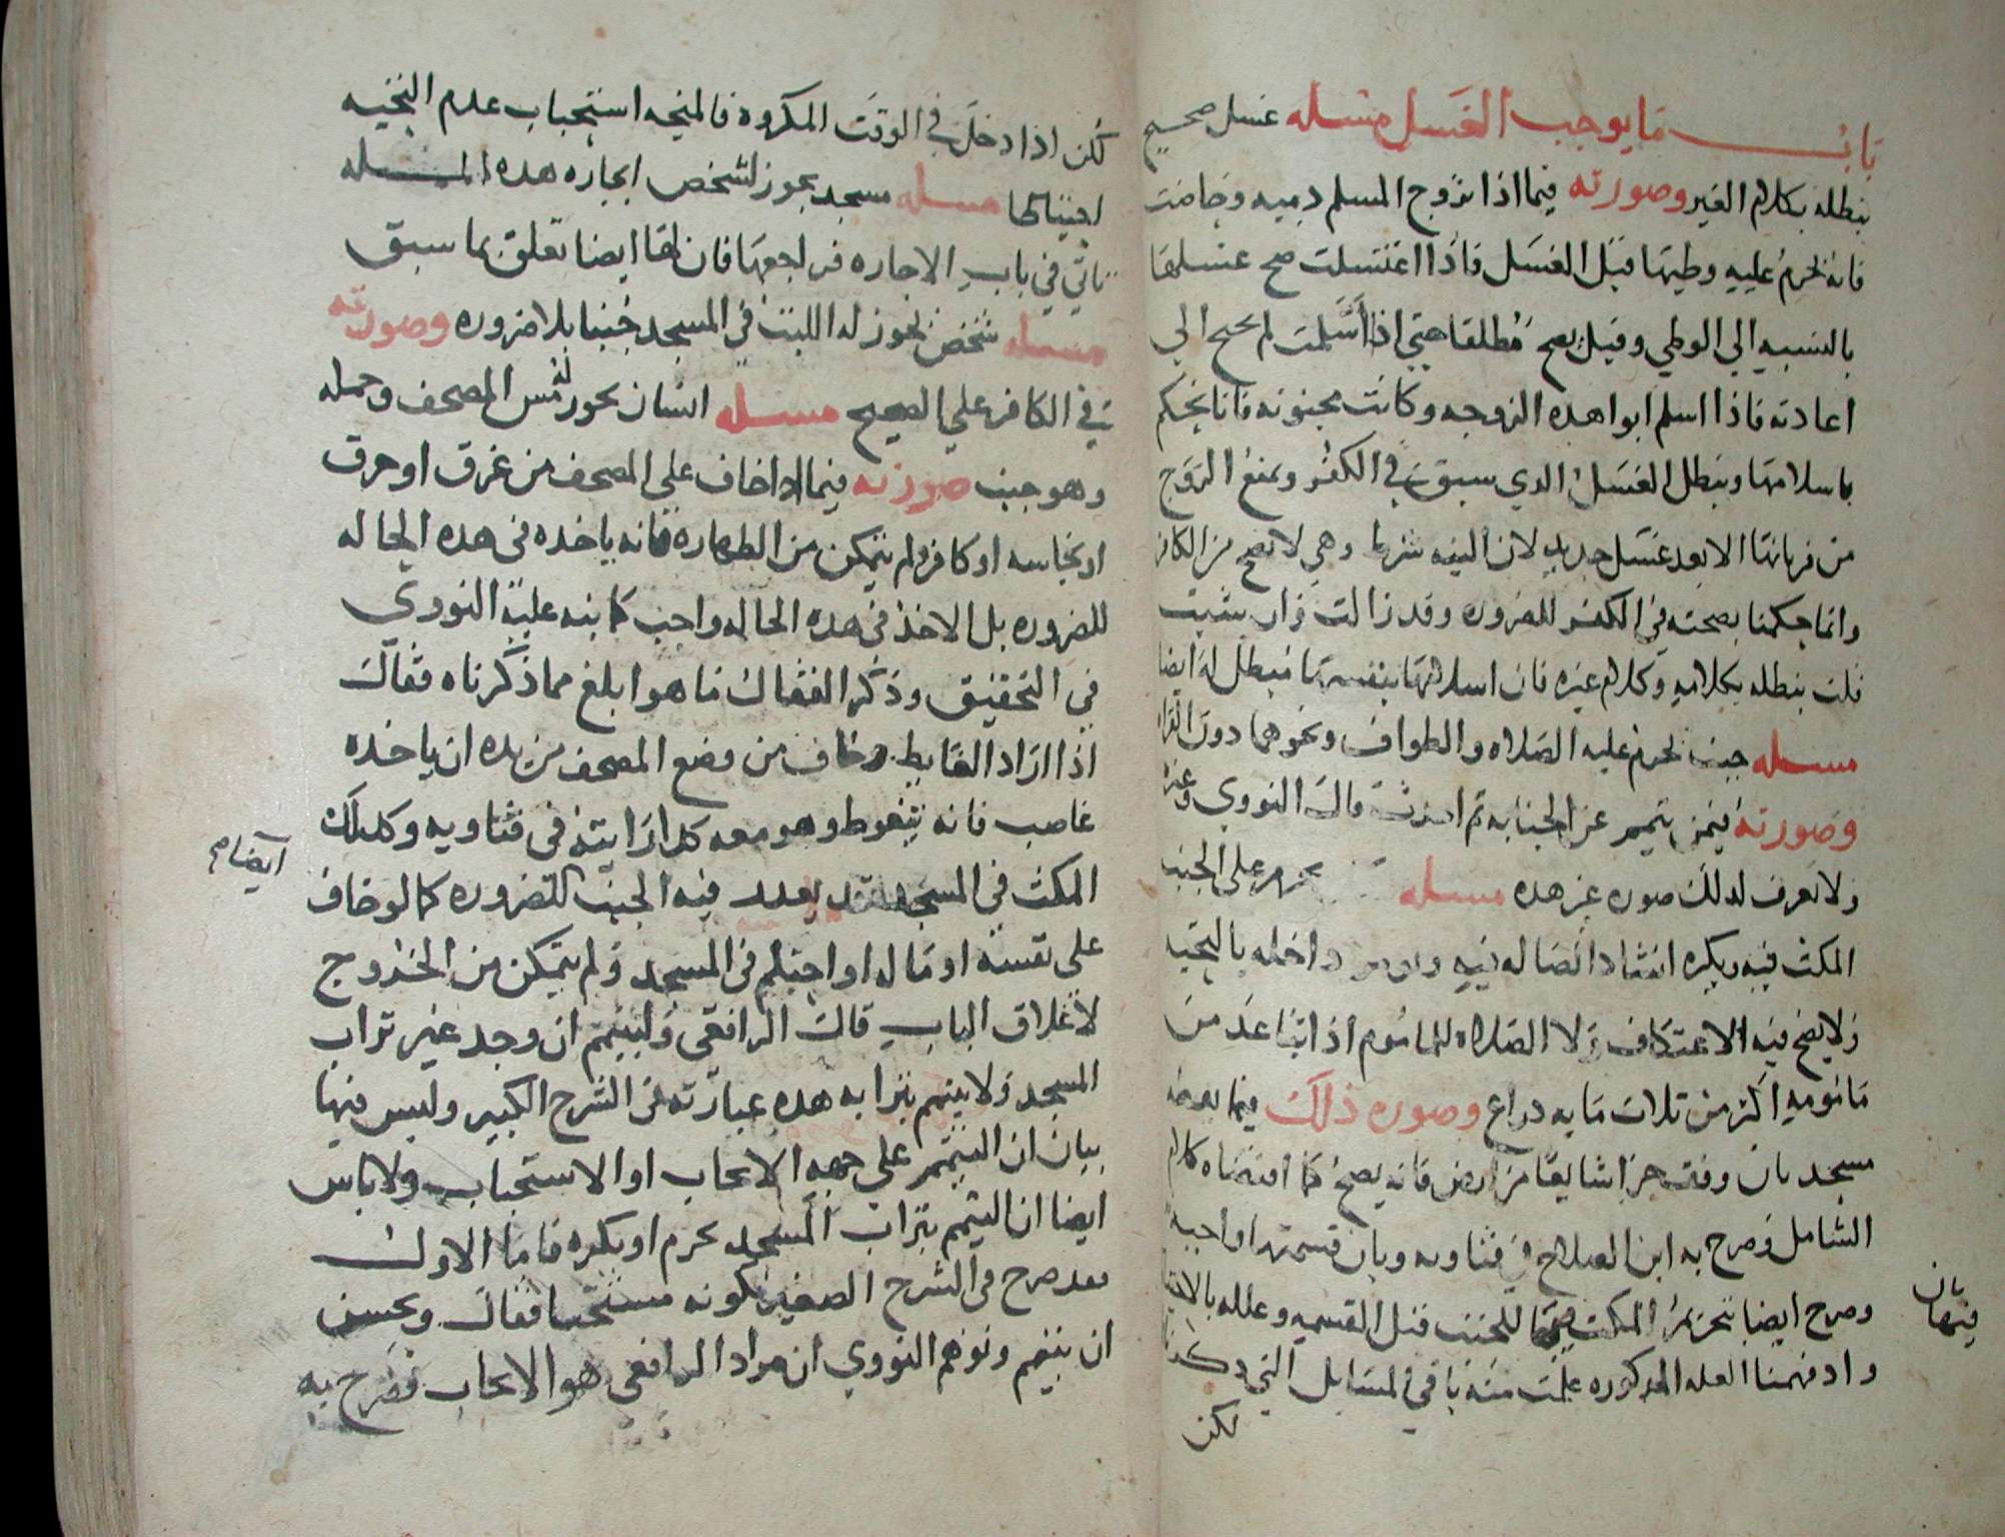 باب ما يوجب الغسل مسله غسل صحيح
نبطله بكلام الغير وصورته فيما اذا تزوج المسلم دميه وحاضت
فانه يحرم عليه وطيها قبل الغسل فاذا اغتسلت صح غسلها
بالنسبه الي الوطي وقيل يصح مطلقا حتي اذا أسلمت لم تحتج الي
اعادته فاذا اسلم ابوا هده الزوجه وكانت مجنونه فانا نحكم
باسلامها ونبطل الغسل الدي سبق في الكفر ونمنع الزوج
من قربانها الا بعد غسل جديد لان النيه شرط وهي لا تصح من الكافر
وانما حكمنا بصحته في الكفر للضروره وقد زالت وان شيت
قلت نبطله بكلامه وكلام غيره فان اسلامها بنفسها مبطل له ايضا
مسله جنب يحرم عليه الصلاه والطواف ونحوهما دون القراه
وصورته فيمن يتمم عن الجنابه ثم احدث قال النووي وغيره
ولا نعرف لدلك صوره غير هده مسله يحرم علي الجنب
المكث فيه ويكره انشاد الضاله فيه داخله بالتحيه
ولا يصح فيه الاعتكاف ولا الصلاه للماموم اذا تباعد من
مامومه اكثر من ثلاث مايه دراع وصوره ذلك فيما بعضه
مسجد بان وقف جزا شايعا من ارض فانه يصح كما اقتضاه كلام
الشامل وصرح به ابن الصلاح في فتاويه وبان قسمتها واجبه
وصرح ايضا بتحريم المكث فيها للجنب قبل القسمه وعلله بالاحتياط
واد فهمنا العله المدكوره علمت منه باقي المسايل التي دكرنا
فيها بان
لكن
لكن اذا دخل في الوقت المكروه فالمتجه استحباب عدم التحيه
احتياطا مسله مسجد يجوز لشخص ايجاره هده المسله
تاتي في باب الاجاره فراجعها فان لها ايضا تعلق بما سبق
مسله شخص يجوز له اللبث في المسجد جنبا بلا ضروره وصورته
في الكافر علي الصحيح مسله انسان يجوز له مس المصحف وحمله
وهو جنب صورته فيما ادا خاف علي المصحف من غرق او حرق
او نجاسه او كافر ولم يتمكن من الطهاره فانه ياخده في هده الحاله
للضروره بل الاخذ في هده الحاله واجب كما بنه عليه النووي
في التحقيق وذكر القفال ما هو ابلغ مما ذكرناه فقال
اذا اراد الغايط وخاف من وضع المصحف من يده ان ياخده
غاصب فانه يتغوط وهو معه كدا رايته في فتاويه وكدلك
ايضا صح
المكث في المسجد قد يعدر فيه الجنب للضروره كما لو خاف
علي نفسه او ماله او احتلم في المسجد ولم يتمكن من الخروج
لاغلاق الباب قال الرافعي وليتيمم ان وجد غير تراب
المسجد ولا يتيمم بترابه هده عبارته في الشرح الكبير وليس فيها
بيان ان التيمم علي جهه الايجاب او الاستحباب ولا باس
ايضا ان التيمم بتراب المسجد يحرم او يكره فاما الاول
فقد صرح في الشرح الصغير بكونه مستحبا فقال ويحسن
ان يتيمم وتوهم النووي ان مراد الرافعي هو الايجاب فصرح به